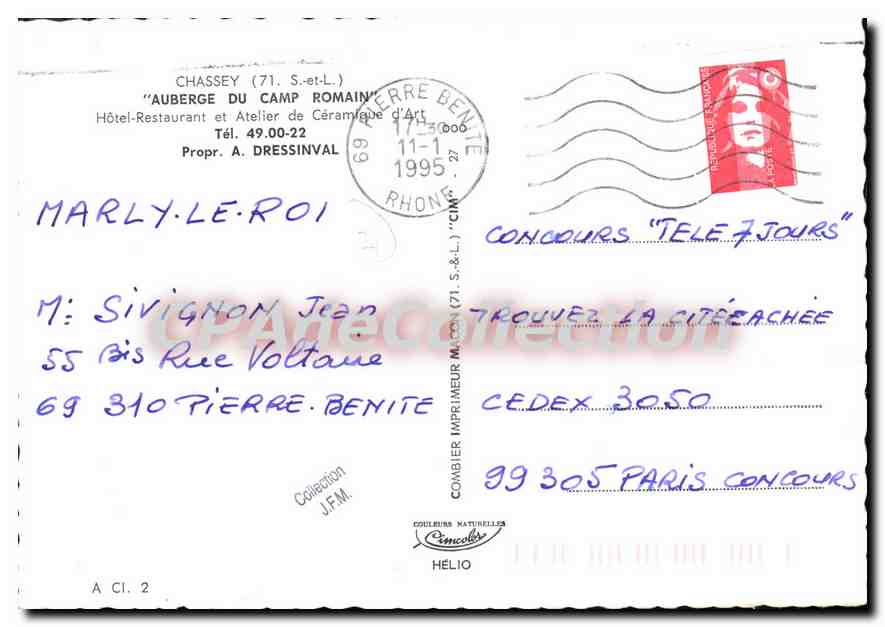 CHASSEY (71. S.-et-L.)
"AUBERGE DU CAMP ROMAIN"
Hôtel-Restaurant et Atelier de Céramique d'Art
Tél. 49.00-22
Propr. A. DRESSINVAL
69 PIERRE BENITE
17H30
11-1
1995
RHONE
000
27
RÉPUBLIQUE FRANÇAISE
LA POSTE
MARLY-LE-ROI
M: SIVIGNON Jean
55 Bis Rue Voltaire
69 310 PIERRE-BENITE
COMBIER IMPRIMEUR MACON (71. S.-&-L.) "CIM"
CONCOURS "TELE 7 JOURS"
TROUVEZ LA CITÉE CACHÉE
CEDEX 3050
99305 PARIS CONCOURS
CPArteCollection
Collection
J.F.M.
COULEURS NATURELLES
Cimcolor
HÉLIO
A CI. 2